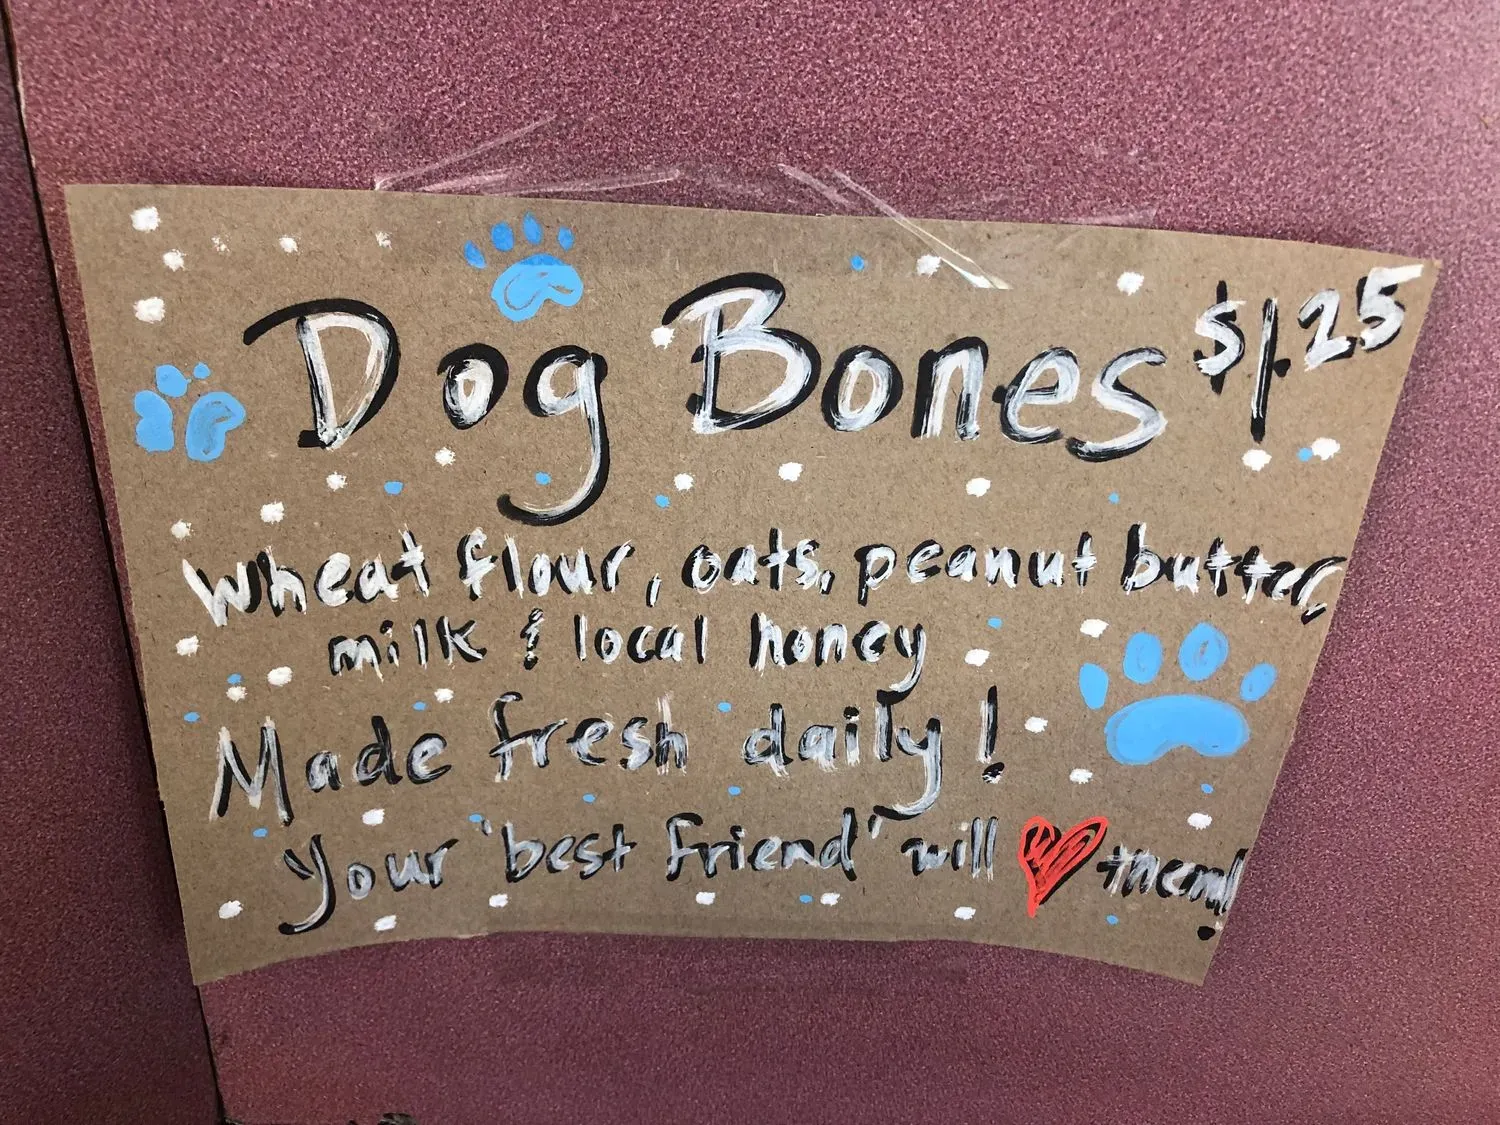 Dog Bones $1.25
Wheat flour, oats, peanut butter,
milk & local honey
Made fresh daily!
Your 'best friend' will ♥ them!